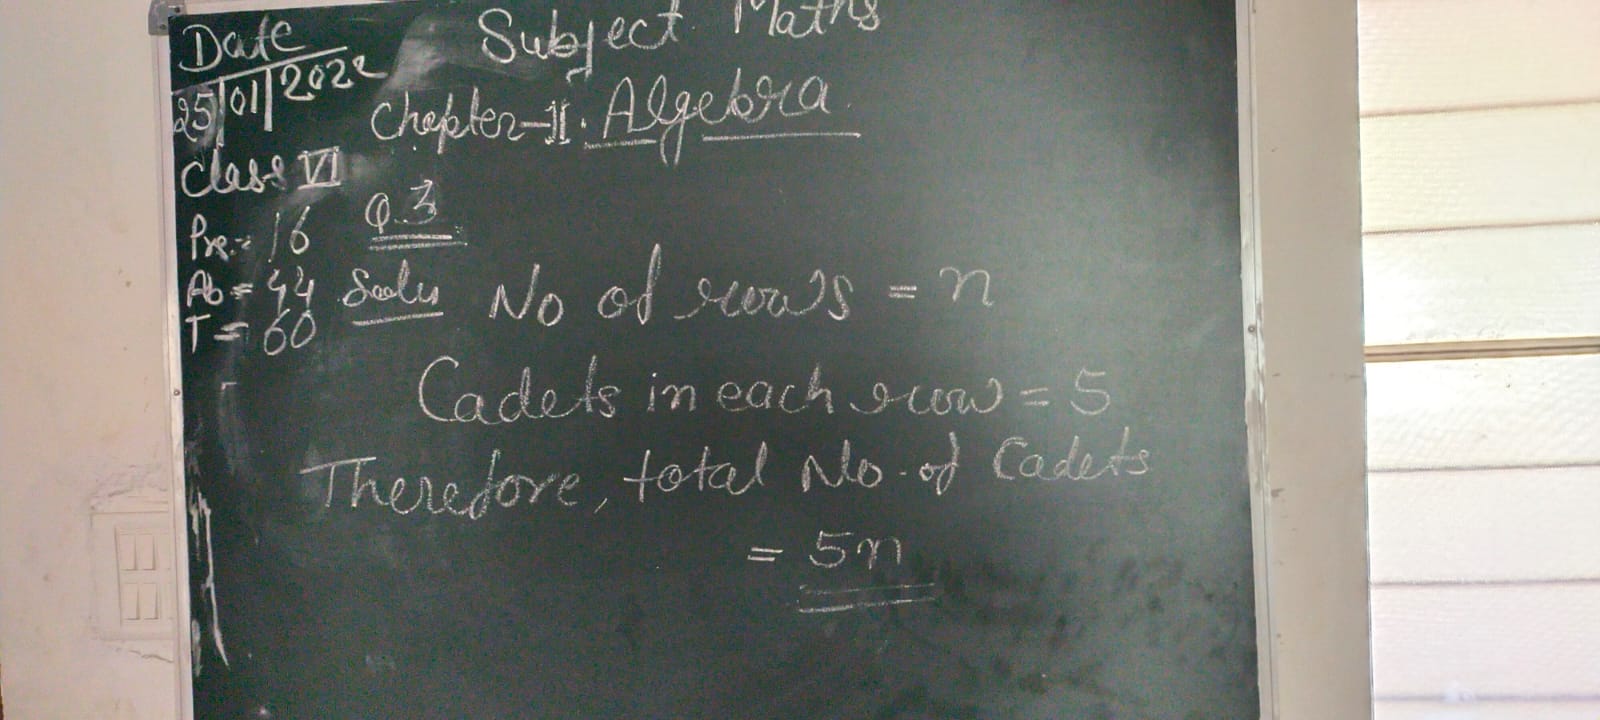 Date
25/01/2022
Subject Maths
Chapter-11. Algebra
Class VI
Pre. = 16
Ab = 44
T = 60
Q.3
No of rows = n
Cadets in each row = 5
Therefore, total No. of Cadets
= 5n